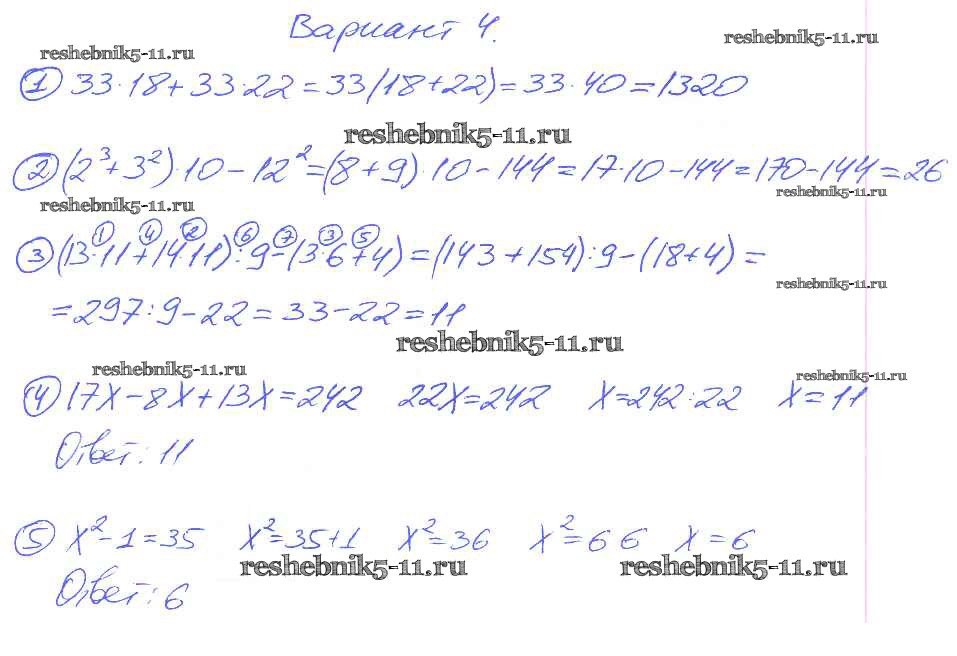 Вариант 4.
reshebnik5-11.ru
reshebnik5-11.ru
① 33·18+33·22=33(18+22)=33·40=1320
reshebnik5-11.ru
② (2³+3²)·10-12²=(8+9)·10-144=17·10-144=170-144=26
reshebnik5-11.ru
reshebnik5-11.ru
① ④ ② ⑥ ⑦ ③ ⑤
③ (13·11+14·11):9-(3·6+4)=(143+154):9-(18+4)=
reshebnik5-11.ru
=297:9-22=33-22=11
reshebnik5-11.ru
reshebnik5-11.ru
reshebnik5-11.ru
④ 17x-8x+13x=242 22x=242 x=242:22 x=11
Ответ: 11
⑤ x²-1=35 x²=35+1 x²=36 x²=6 6 x=6
reshebnik5-11.ru
reshebnik5-11.ru
Ответ: 6